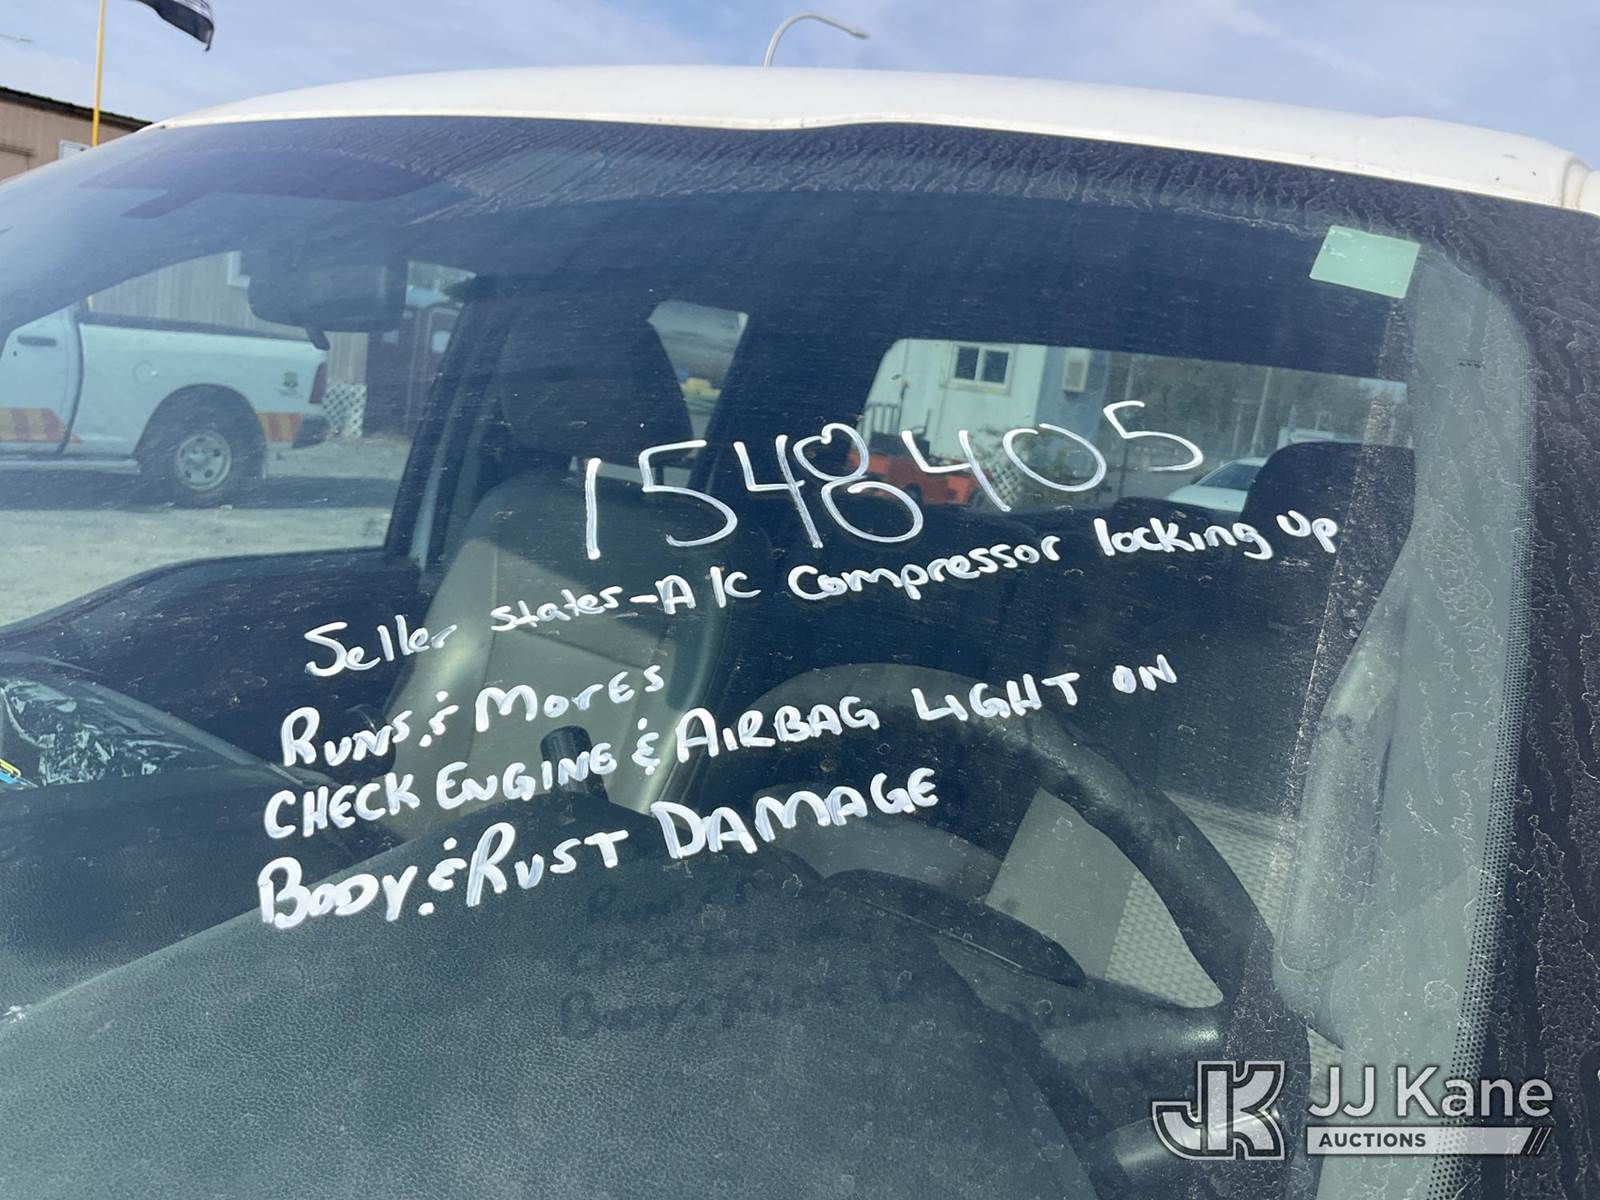 1548405
Seller States-A/C Compressor locking up
RUNS & MOVES
CHECK ENGINE & AIRBAG LIGHT ON
BODY & RUST DAMAGE
JK JJ Kane
AUCTIONS